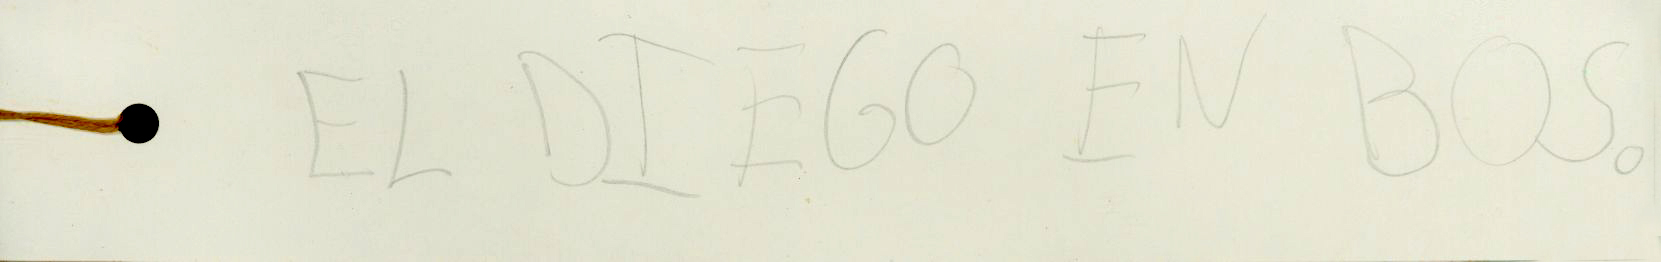 EL DIEGO EN BOS.